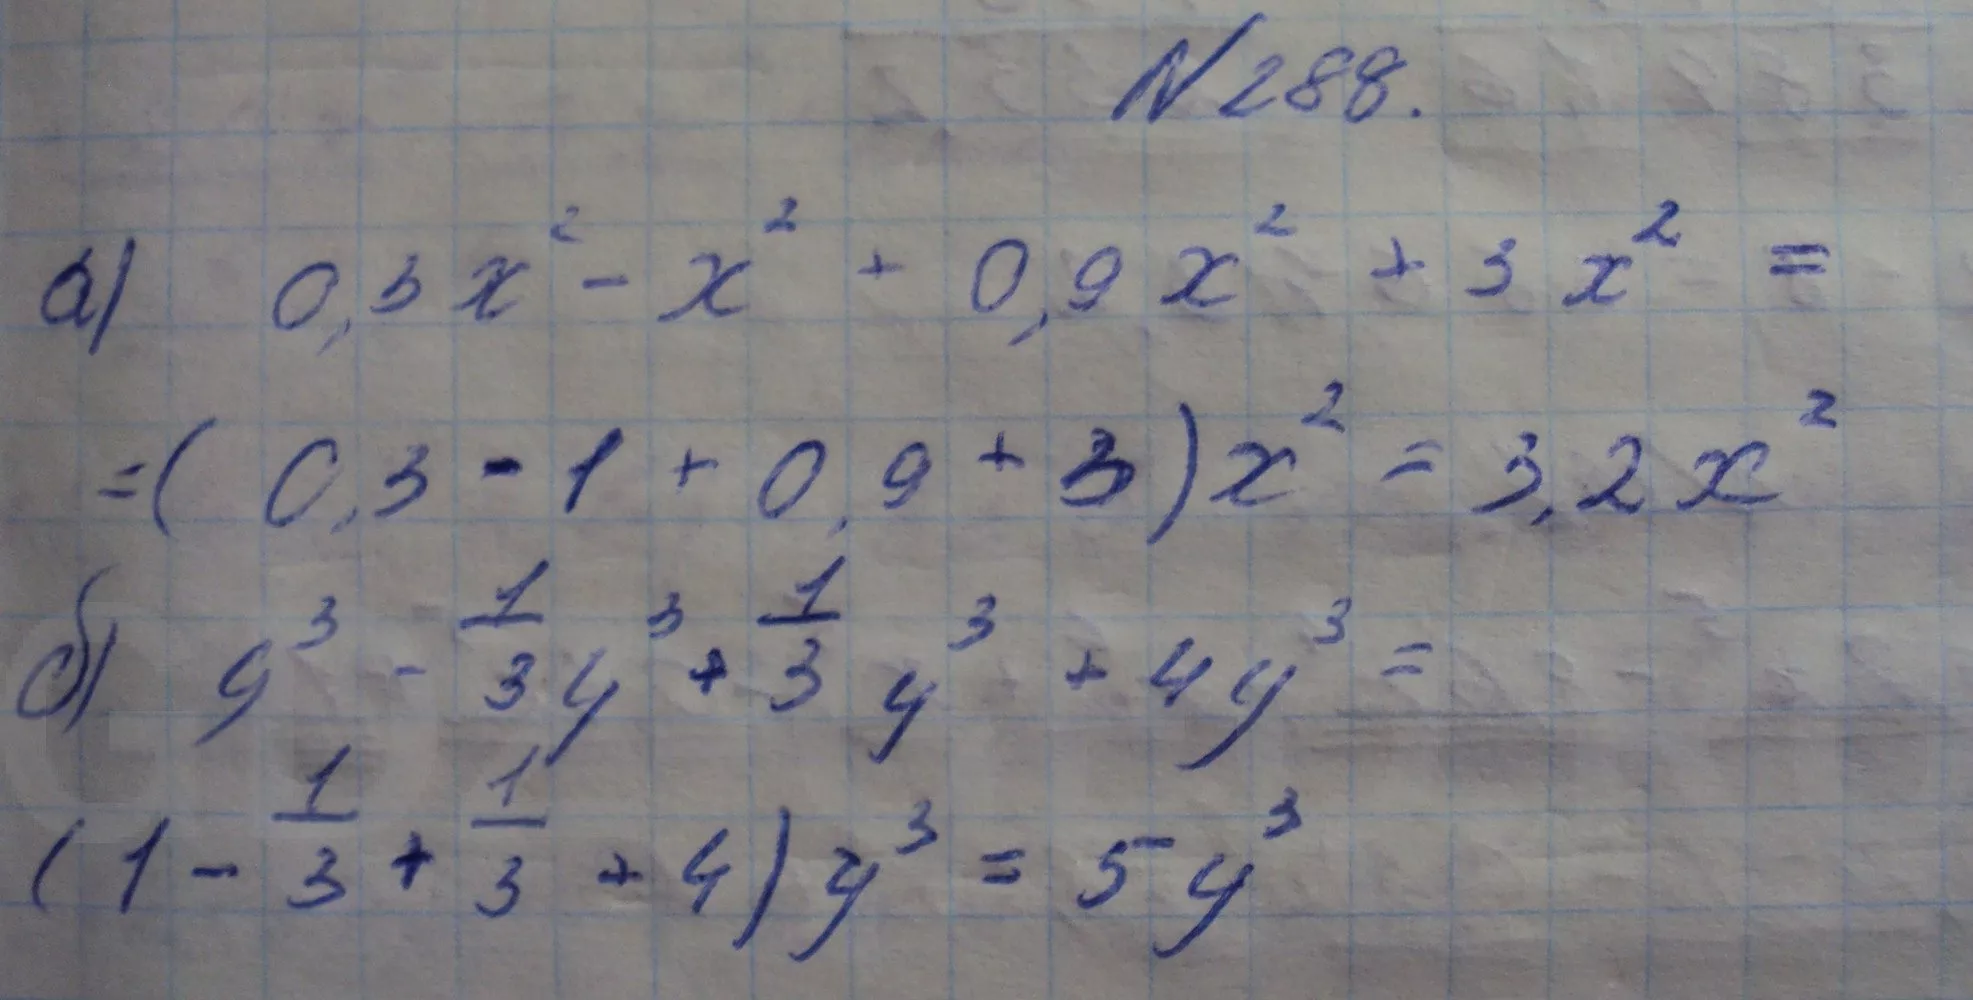 N288.
а) 0,3x² - x² + 0,9x² + 3x² =
=(0,3 - 1 + 0,9 + 3)x² = 3,2x²
б) y³ - 1/3 y³ + 1/3 y³ + 4y³ =
(1 - 1/3 + 1/3 + 4)y³ = 5y³